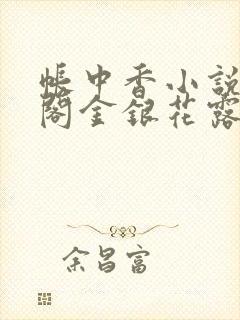 帳中香小說
閣金銀花露
余昌富